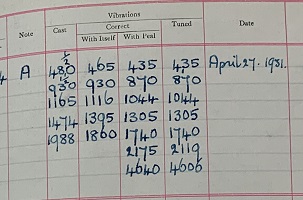 Vibrations
Note Cast Correct Tuned Date
With Itself With Peal
4 A 465 435 435 April 27. 1931.
930 870 870
1165 1116 1044 1044
1474 1395 1305 1305
1988 1860 1740 1740
2175 2119
4640 4606